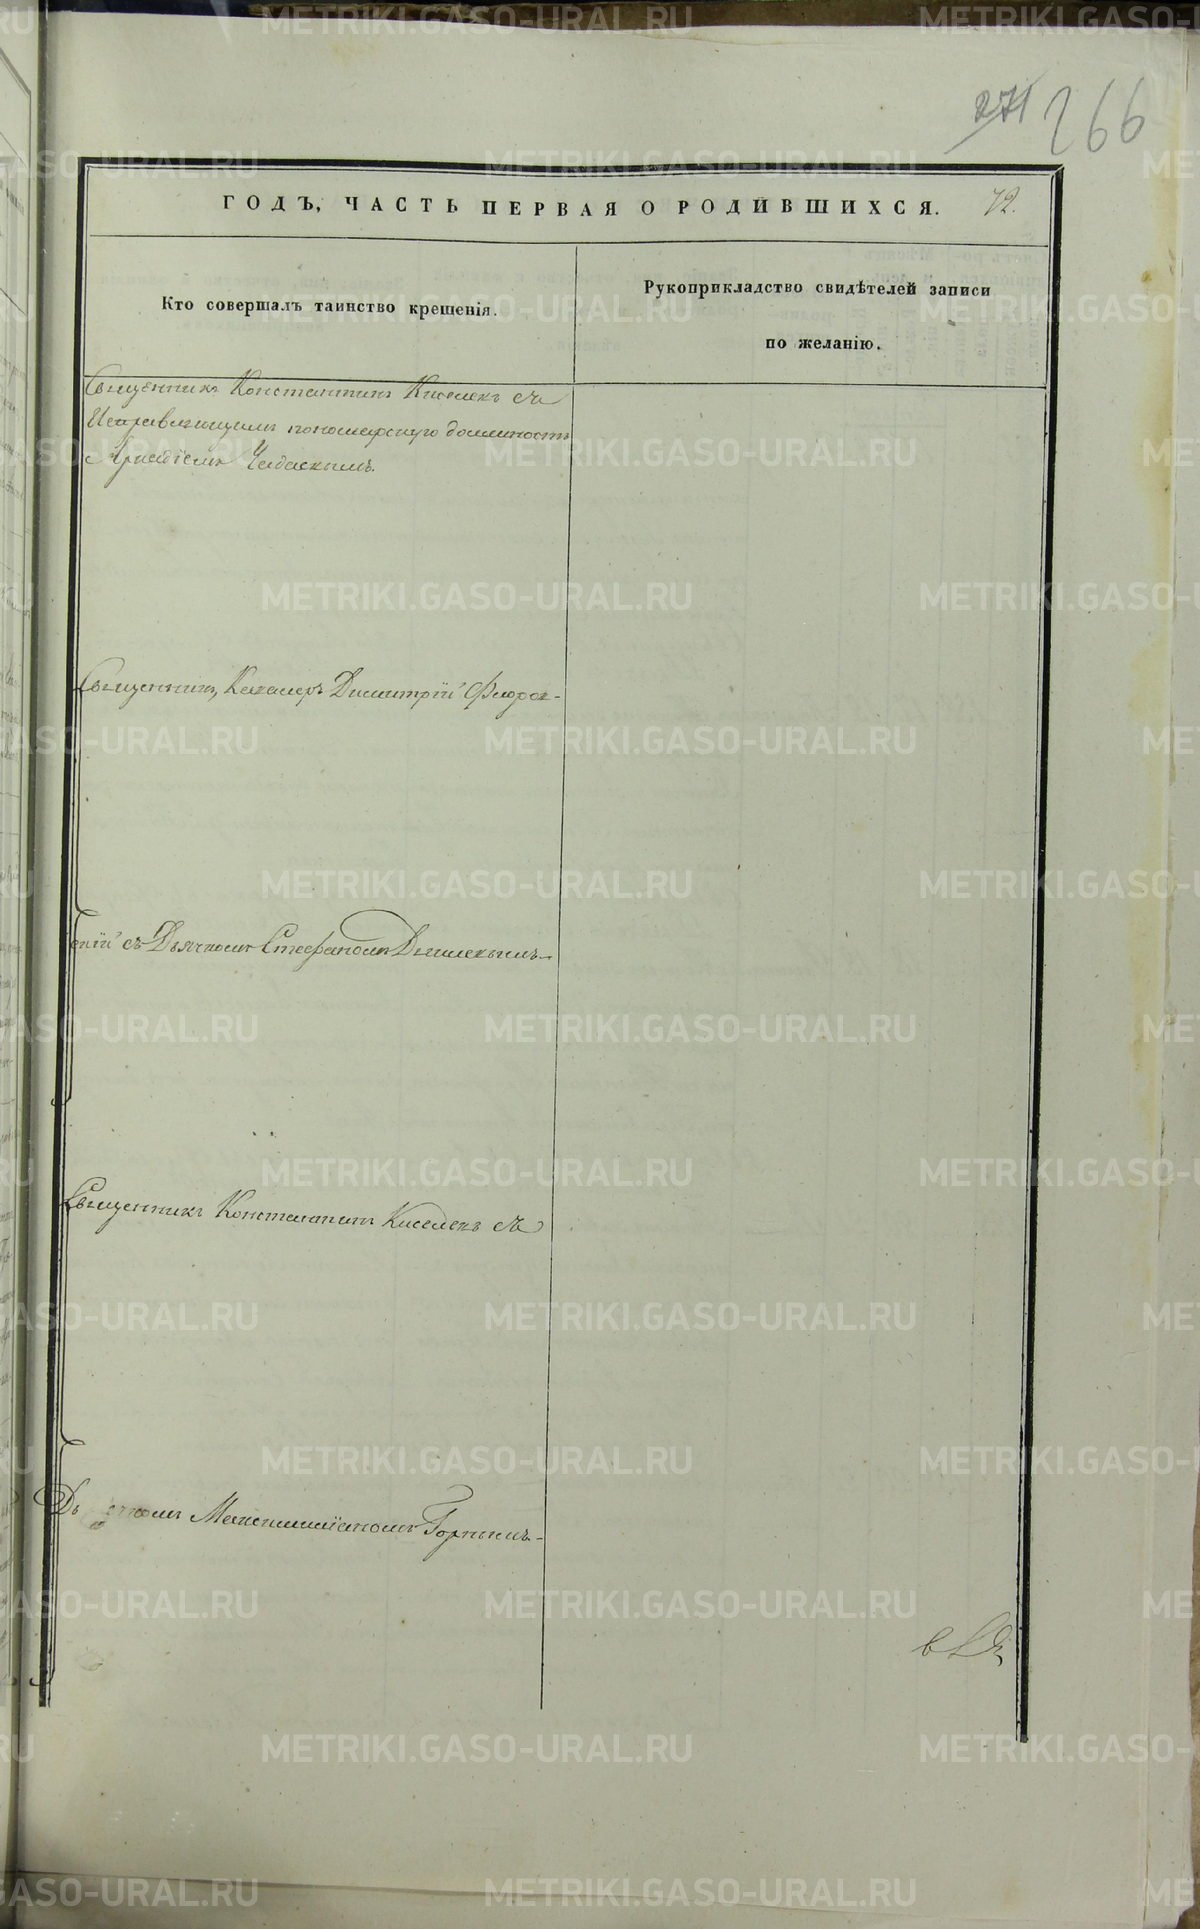 271 266
ГОДЪ, ЧАСТЬ ПЕРВАЯ О РОДИВШИХСЯ. 72.
Кто совершалъ таинство крещенія.
Рукоприкладство свидѣтелей записи
по желанію.
Священникъ Константинъ Киселевъ съ
Исправляющимъ пономарскую должность
Аркадіемъ
Священникъ, Кавалеръ Димитрій Флоров-
скій съ Дьячкомъ Стефаномъ
Священникъ Константинъ Киселевъ съ
Максимиліаномъ Горнымъ
METRIKI.GASO-URAL.RU